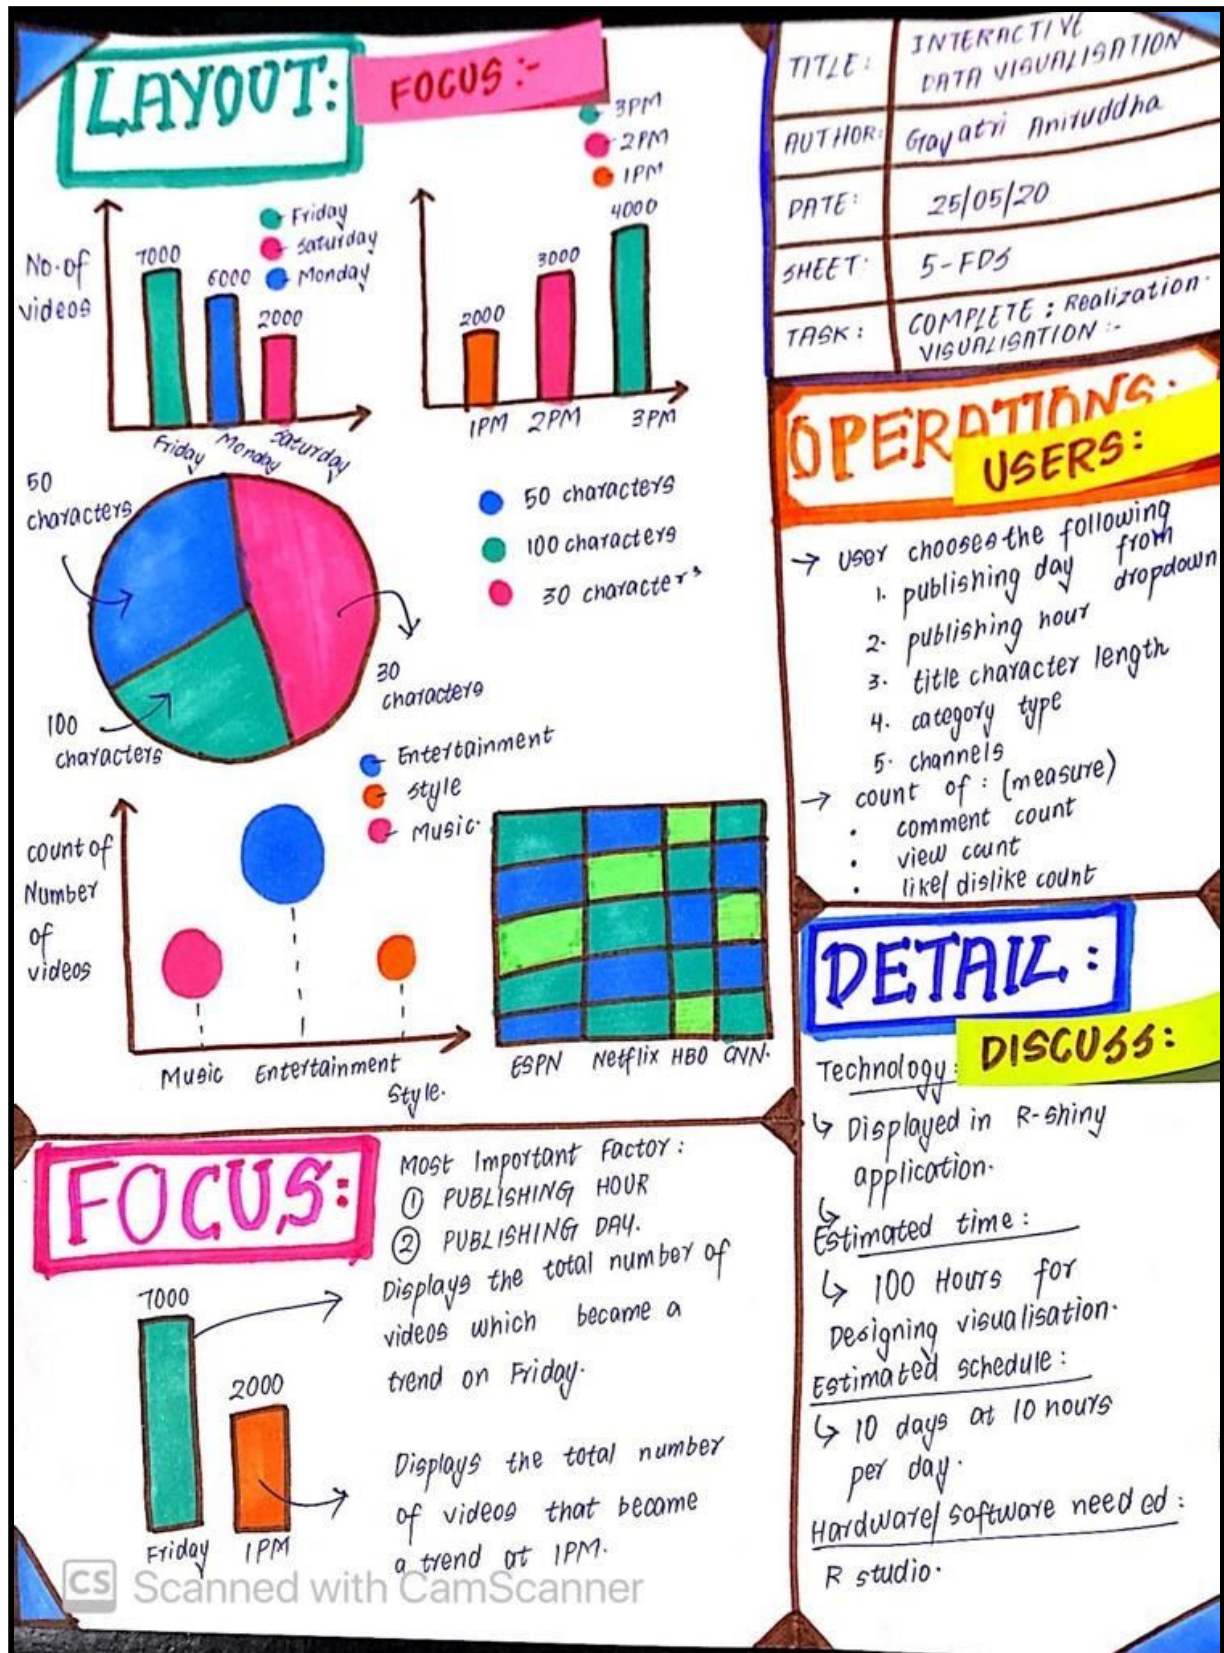 LAYOUT:
FOCUS :-
3PM
2PM
1PM
Friday
Saturday
Monday
No. of
videos
7000
6000
2000
Friday
Monday
Saturday
2000
3000
4000
1PM 2PM 3PM
50
characters
100
characters
30
characters
50 characters
100 characters
30 characters
Entertainment
Style
Music.
count of
Number
of
videos
Music Entertainment
Style.
ESPN Netflix HBO CNN.
FOCUS:
7000
2000
Friday 1PM
Most Important Factor :
① PUBLISHING HOUR
② PUBLISHING DAY.
Displays the total number of
videos which became a
trend on Friday.
Displays the total number
of videos that became
a trend at 1PM.
TITLE : INTERACTIVE
DATA VISUALISATION
AUTHOR: Gayatri Aniruddha
DATE: 25/05/20
SHEET: 5-FDS
TASK: COMPLETE : Realization.
VISUALISATION :-
OPERATIONS:
USERS:
→ User chooses the following
1. publishing day from
dropdown
2. publishing hour
3. title character length
4. category type
5. channels
→ count of : (measure)
• comment count
• view count
• like/ dislike count
DETAIL :
DISCUSS:
Technology:
↳ Displayed in R-shiny
application.
↳
Estimated time :
↳ 100 Hours for
Designing visualisation.
Estimated schedule :
↳ 10 days at 10 hours
per day.
Hardware/ software needed :
R studio.
CS Scanned with CamScanner